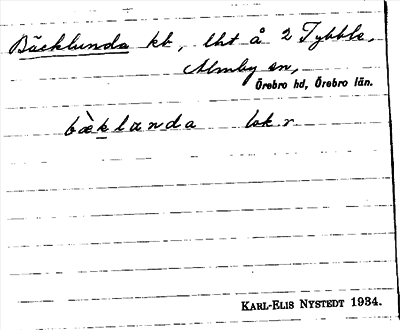 Bäcklunda kt, lht å 2 Tybble,
Almby sn,
Örebro hd, Örebro län.
bæ̀klunda lsk. r
KARL-ELIS NYSTEDT 1934.